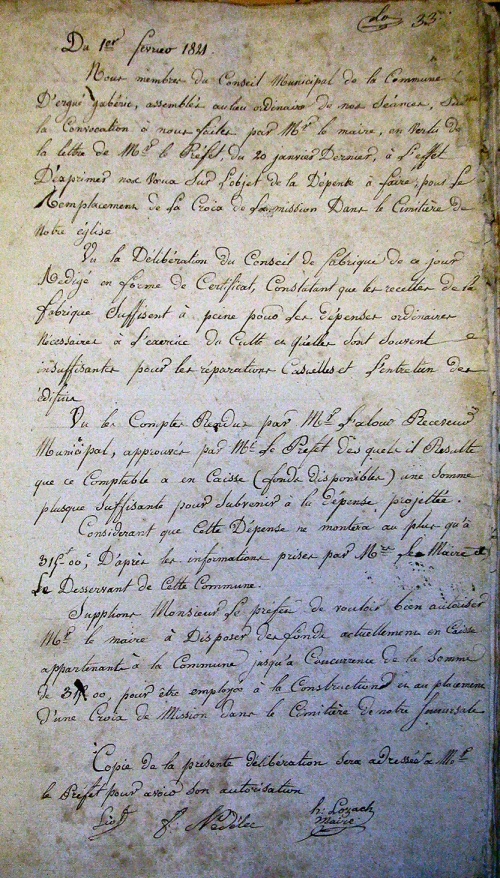 33
Du 1er fevrier 1821.
Nous membres du Conseil Municipal de la Commune
D'ergué gabéric, assemblés au lieu ordinaire de nos Séances, Sur
la Convocation à nous faite par Mr. le maire, en vertu de
la lettre de Mr. le Préfet, du 20 janvier Dernier, à l'effet
D'exprimer nos vœux Sur l'objet de la Dépense à faire, pour le
Remplacement de la Croix de la mission Dans le Cimitière de
Notre église
Vu la Délibération du Conseil de fabrique de ce jour
Rédigé en forme de Certificat, Constatant que les recettes de la
fabrique Suffisent à peine pour les Dépenses ordinaires
Nécessaires à l'exercice du Culte et qu'elles sont souvent
insuffisantes pour les réparations Casuelles et l'entretien des
édifices
Vu les Comptes Rendus par Mr. Jalour Receveur
Municipal, approuvés par Mr. le Prefet Des quels il Resulte
que ce Comptable a en Caisse (fonds disponibles) une Somme
plusque Suffisante pour Subvenir à la Dépense projettée.
Considerant que Cette Dépense ne montera au plus qu'à
315f 00c, D'après les informations prises par Mrs. le Maire et
Le Desservant de Cette Commune.
Supplions Monsieur le prefet de vouloir bien autoriser
Mr. le maire à Disposer des fonds actuellement en Caisse
appartenants à la Commune jusqu'à Concurrence de la Somme
de 315f 00, pour être employés à la Construction et au placement
D'une Croix de Mission dans le Cimitière de notre Succursale
Copie de la presente délibération sera adressée à Mr.
le Préfet pour avoir son autorisation
f. Nédélec
h. Lozach
Maire